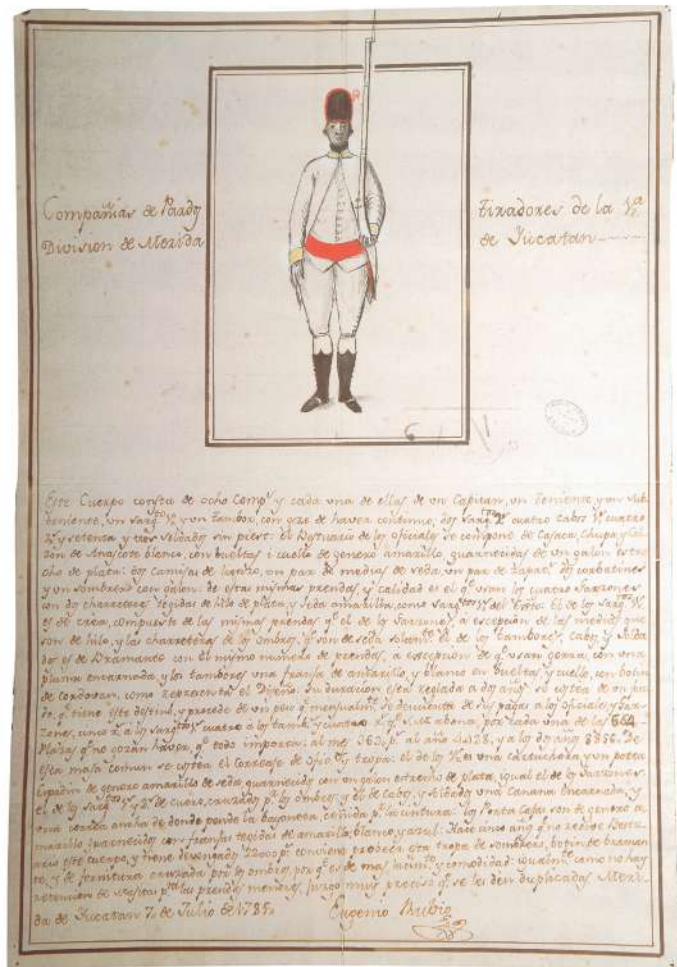 Compañias de Pardos
Division de Merida
tiradores de la 1ª
de Yucatan
Este Cuerpo consta de ocho Comps y cada una de ellas de un Capitan, un Teniente, y un Sub
teniente, un Sargto 1º y un Tambor, con goze de haver continuo, dos Sargtos 2os cuatro cabos 1os cuatro
2os y setenta y tres soldados sin
se compone de Casaca, Chupa, y Cal
zón de Anascote blanco, con bueltas i cuello de genero amarillo, guarnecidas de un galon estre
cho de plata: dos camisas de un par de medias de seda, un par de dos corbatines
y un sombrero con galon: de estas mismas prendas, y calidad es el q usan los cuatro Garzones
con dos charreteras tegidas de hilo de plata, y seda amarilla, como
es de crea, compuesto de las mismas prendas q el de los Garzones a excepcion de las medias que
son de hilo, y las charreteras de los ombros, q son de seda el de los tambores, Cabos y Solda
dos es de Bramante con el mismo numero de prendas, a excepcion de q usan gorra con una
pluma encarnada, y los tambores una franja de amarillo, y blanco en bueltas y cuello, con botin
de cordovan, como representa el Diseño. Su duracion esta reglada a dos años se costea de un
q tiene este destino, y procede de un peso q mensualmte se descuenta de sus pagas a los oficiales, y Gar
zones, cinco rs a los cuatro a los tambs y cuatro rs q S.M. abona, por cada una de las 664
Plazas q no gozan haver, q todo importa: al mes 369 ps al año 4428, y a los dos años 8856. De
esta masa comun se costea el Correage de y tropa: el de los es una cartuchera y un porta
Espadin de genero amarillo de seda, guarnecido con un galon estrecho de plata, igual el de los Garzones
el de los y 2os de cuero, cruzado pr los ombros, y el de Cabos, y Soldados una Canana Encarnada, y
una correa ancha de donde pende la bayoneta, ceñida pr la cintura: los Porta Cajas son de genero a
marillo guarnecidos con franjas tegidas de amarillo, blanco, y azul. Hace cinco años q no recive Bestu
ario este cuerpo, y tiene devengado 22000 ps conviene proveer esta tropa de sombreros, botin de braman
te, y de fornitura cruzada por los ombros, por q es de mas y comodidad: igualmte como no hay
retencion de para las prendas menores, juzgo muy preciso q se les den duplicadas. Meri
da de Yucatan 7 de Julio de 1785
Eugenio Rubio